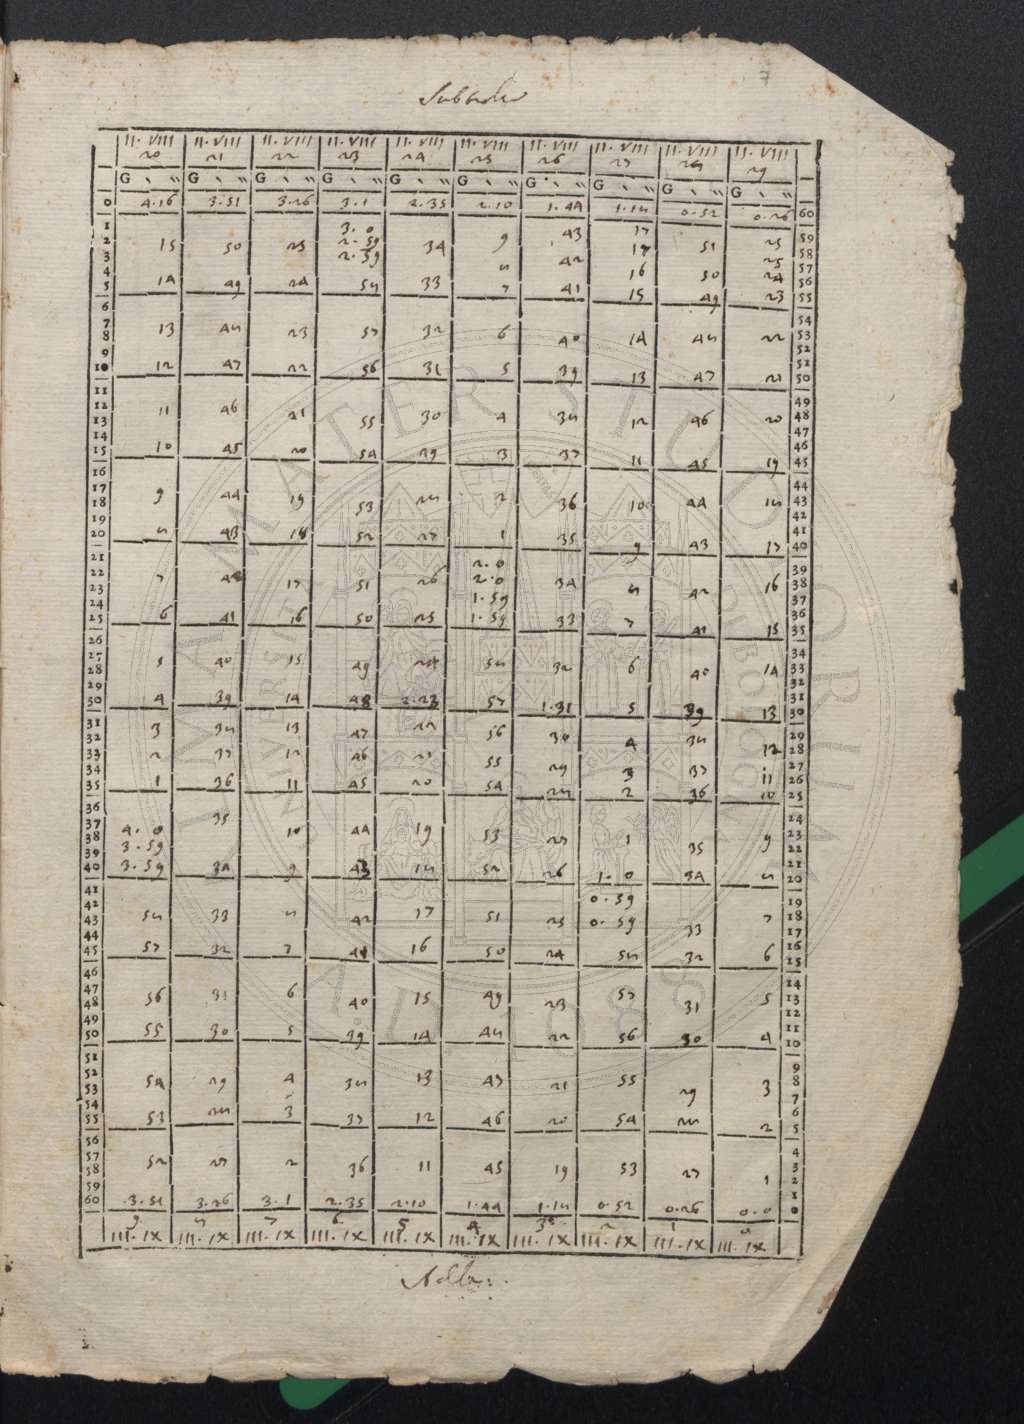 7
Subtrahe
II. VIII II. VIII II. VIII II. VIII II. VIII II. VIII II. VIII II. VIII II. VIII II. VIII
20 21 22 23 24 25 26 27 28 29
G ` `` G ` `` G ` `` G ` `` G ` `` G ` `` G ` `` G ` `` G ` `` G ` ``
0 4.16 3.51 3.26 3.1 2.35 2.10 1.44 1.18 0.52 0.26 60
1 3.0 43 17 59
2 15 50 25 2.59 34 9 17 51 25 58
3 2.59 42 25 57
4 8 16 50 24 56
5 14 49 24 58 33 7 41 15 49 23 55
6 54
7 13 48 23 57 32 6 40 14 48 22 53
8 52
9 51
10 12 47 22 56 31 5 39 13 47 21 50
11 49
12 11 46 21 55 30 4 38 12 46 20 48
13 47
14 46
15 10 45 20 54 29 3 37 11 45 19 45
16 44
17 9 44 19 53 28 2 36 10 44 18 43
18 42
19 41
20 8 43 18 52 27 1 35 9 43 17 40
21 2.0 39
22 7 42 17 51 26 2.0 34 8 42 16 38
23 1.59 37
24 36
25 6 41 16 50 25 1.59 33 7 41 15 35
26 34
27 5 40 15 49 24 58 32 6 40 14 33
28 32
29 31
30 4 39 14 48 2.23 57 1.31 5 39 13 30
31 3 38 13 47 22 56 30 4 38 12 29
32 28
33 2 37 12 46 21 55 29 3 37 11 27
34 26
35 1 36 11 45 20 54 28 2 36 10 25
36 35 24
37 4.0 10 44 19 53 27 1 35 9 23
38 3.59 22
39 21
40 3.59 34 9 43 18 52 26 1.0 34 8 20
41 0.59 19
42 58 33 8 42 17 51 25 0.59 33 7 18
43 17
44 16
45 57 32 7 41 16 50 24 58 32 6 15
46 14
47 56 31 6 40 15 49 23 57 31 5 13
48 12
49 11
50 55 30 5 39 14 48 22 56 30 4 10
51 9
52 54 29 4 38 13 47 21 55 29 3 8
53 7
54 28 3 6
55 53 37 12 46 20 54 28 2 5
56 4
57 52 27 2 36 11 45 19 53 27 1 3
58 2
59 1
60 3.51 3.26 3.1 2.35 2.10 1.44 1.18 0.52 0.26 0.0 0
9 8 7 6 5 4 3 2 1 0
III. IX III. IX III. IX III. IX III. IX III. IX III. IX III. IX III. IX III. IX
Adde
ALMA MATER STUDIORUM
UNIVERSITÀ DI BOLOGNA
A.D. 1088